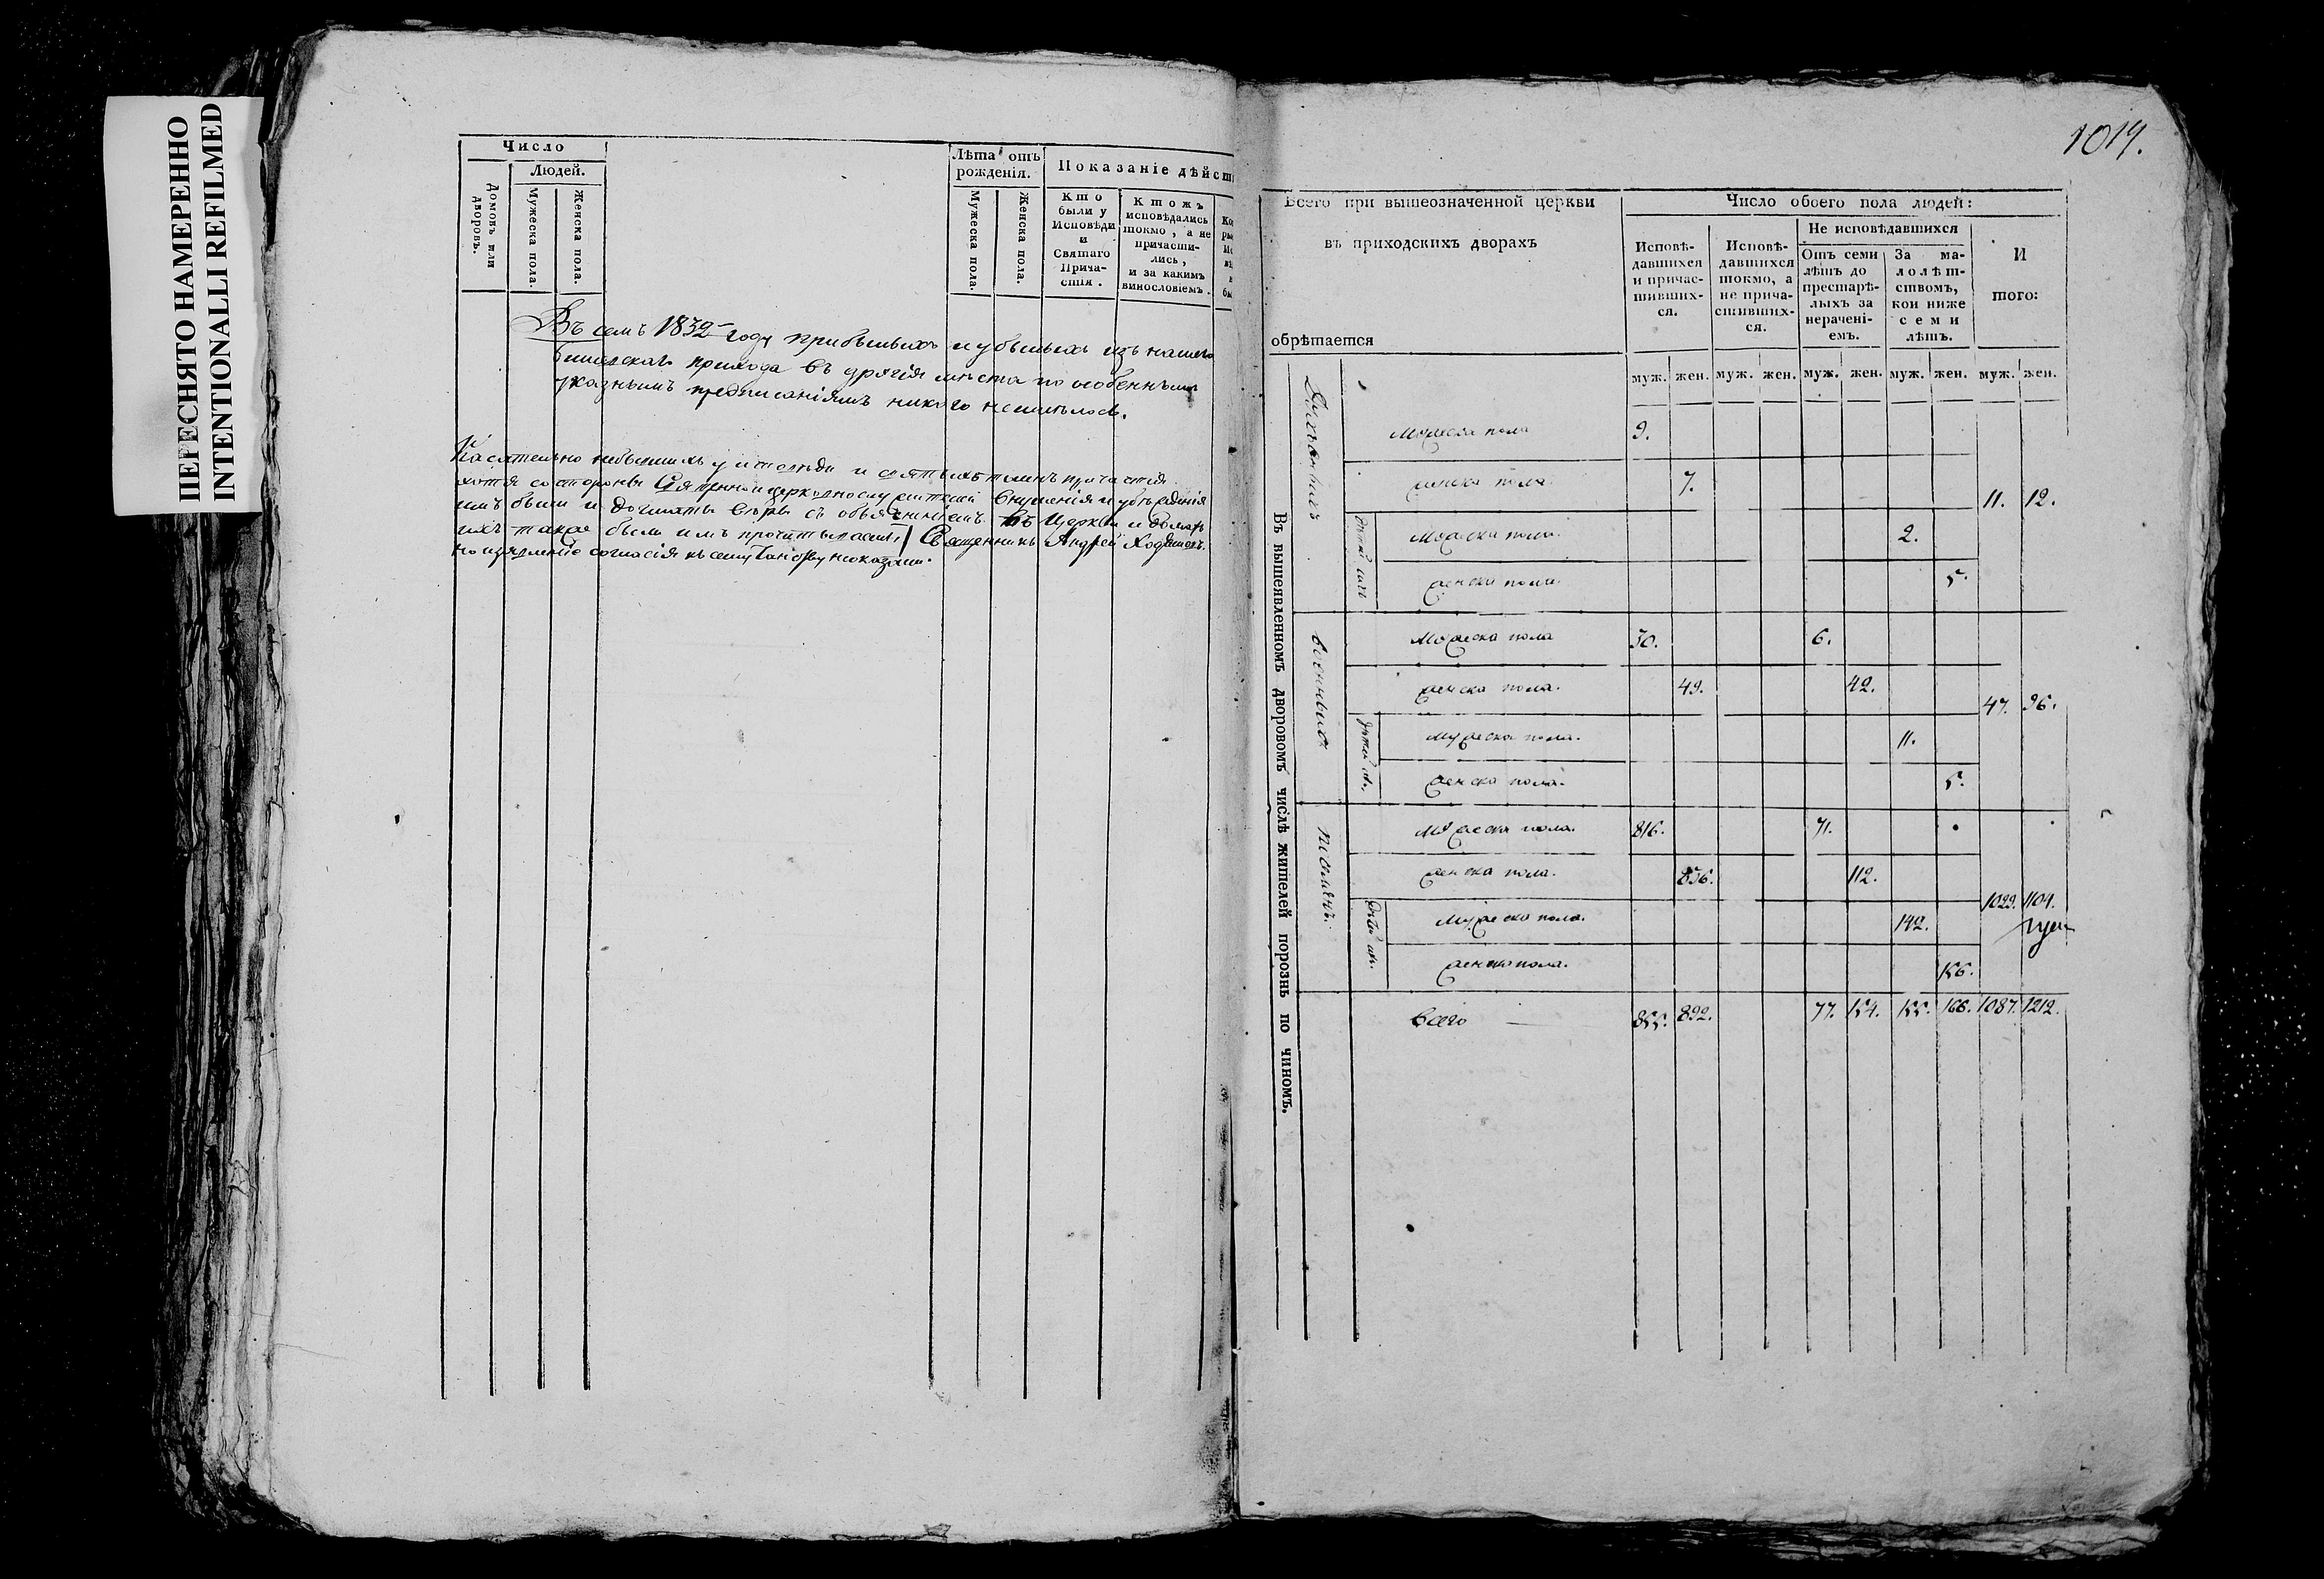 ПЕРЕСНЯТО НАМЕРЕННО
INTENTIONALLI REFILMED
Число
Людей.
Домовъ или дворовъ.
Мужеска пола.
Женска пола.
Лѣта отъ рожденія.
Мужеска пола.
Женска пола.
Показаніе дѣйст
Кто были у Исповѣди и Святаго Прича-стія.
Ктожъ исповѣдались токмо, а не причасти-лись, и за какимъ винословіемъ.
Въ семъ 1832 году прибывшихъ и убывшихъ изъ нашего
прихода въ другія мѣста по особеннымъ
указнымъ предписаніямъ никого неимѣлось.
Касательно небывшихъ у исповѣди и святыхъ таинъ причастія
хотя со стороны Священноцерковнослужителей внушенія и убѣжденія
имъ были и догматы вѣры съ объясненіемъ въ Церкви и домахъ
ихъ также были имъ прочитываемы, Священникъ Андрей
но согласія къ сему неоказали.
1014.
Всего при вышеозначенной церкви
въ приходскихъ дворахъ
обрѣтается
Число обоего пола людей:
Исповѣ-давшихся и причас-тивших-ся.
Исповѣ-давшихся токмо, а не прича-стивших-ся.
Не исповѣдавшихся
Отъ семи лѣтъ до престарѣ-лыхъ за нерачені-емъ.
За ма-лолѣт-ствомъ, кои ниже семи лѣтъ.
И того:
муж. жен. муж. жен. муж. жен. муж. жен. муж. жен.
Въ вышеявленномъ дворовомъ числѣ жителей порознь по чиномъ.
Духовныхъ
Мужеска пола 9.
женска пола 7.
11. 12.
дѣтей ихъ
Мужеска пола. 2.
женска пола. 5.
военныхъ
Мужеска пола 30. 6.
женска пола. 49. 42.
47. 96.
дѣтей ихъ.
Мужеска пола. 11.
женска пола. 5.
Мужеска пола. 816. 71.
женска пола. 836. 112.
1029. 1104.
дѣтей ихъ.
Мужеска пола. 142.
женска пола. 156.
Всего 855. 892. 77. 154. 155. 166. 1087. 1212.